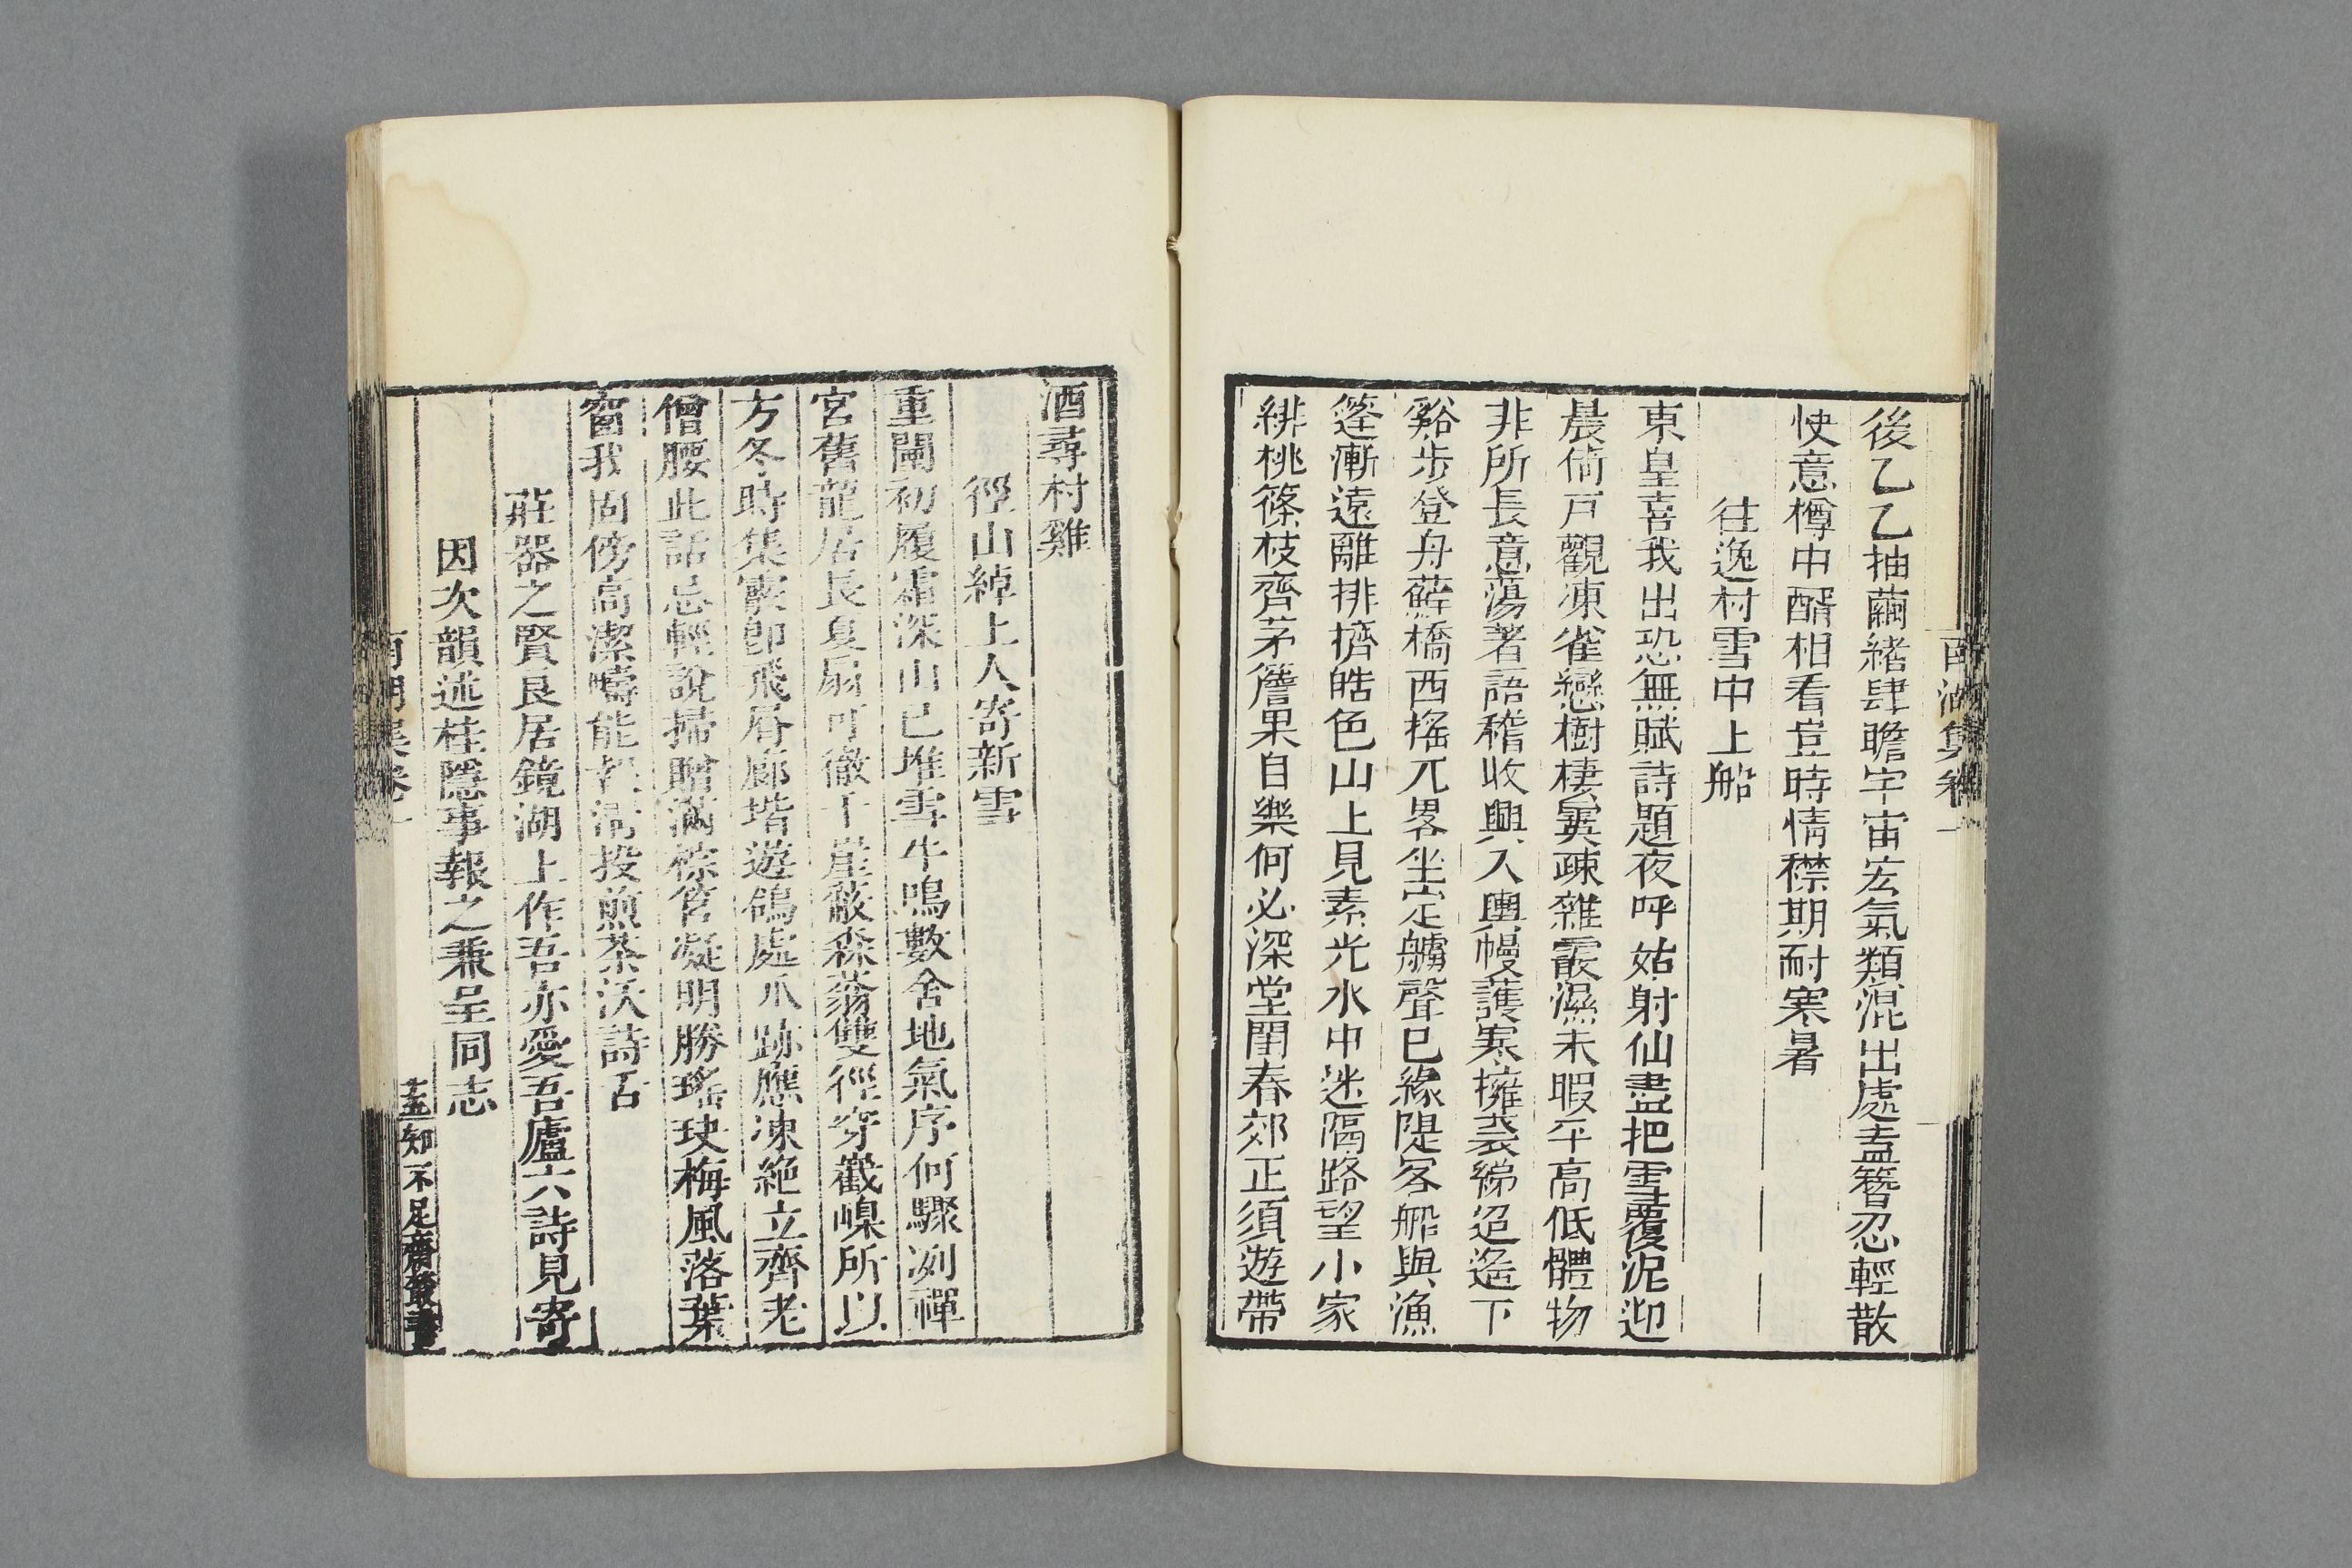 後乙乙抽繭緒肆瞻宇宙宏氣類混出處盍簪忍輕散
快意樽中醑相看豈時情襟期耐寒暑
往逸村雪中上船
東皇喜我出恐無賦詩題夜呼姑射仙盡把雪覆泥迎
晨倚戸觀凍雀戀樹棲霙疎雜霰濕未暇平高低體物
非所長意蕩著語稽收興入輿幔護寒擁裘綈迢遙下
谿步登舟蘚橋西搖兀畧坐定艣聲已緣隄客船與漁
篷漸遠離排擠皓色山上見素光水中迷隔路望小家
緋桃篠枝齊茅簷果自樂何必深堂閨春郊正須遊帶
酒尋村雞
徑山綽上人寄新雪
重闉初履霜深山已堆雪牛鳴數舍地氣序何驟冽禪
宮舊龍居長夏扇可徹千崖蔽森蓊雙徑穿巀嵲所以
方冬時集霙卽飛屑廊堦遊鴿處爪跡應凍絶立齊老
僧腰此話忌輕說掃贈滿棕筥凝明勝瑤玦梅風落葉
窗我固傍高潔嚋能投煎茶沃詩舌
莊器之賢良居鏡湖上作吾亦愛吾廬六詩見寄
因次韻述桂隱事報之兼呈同志
南湖集卷一
十五 知不足齋叢書